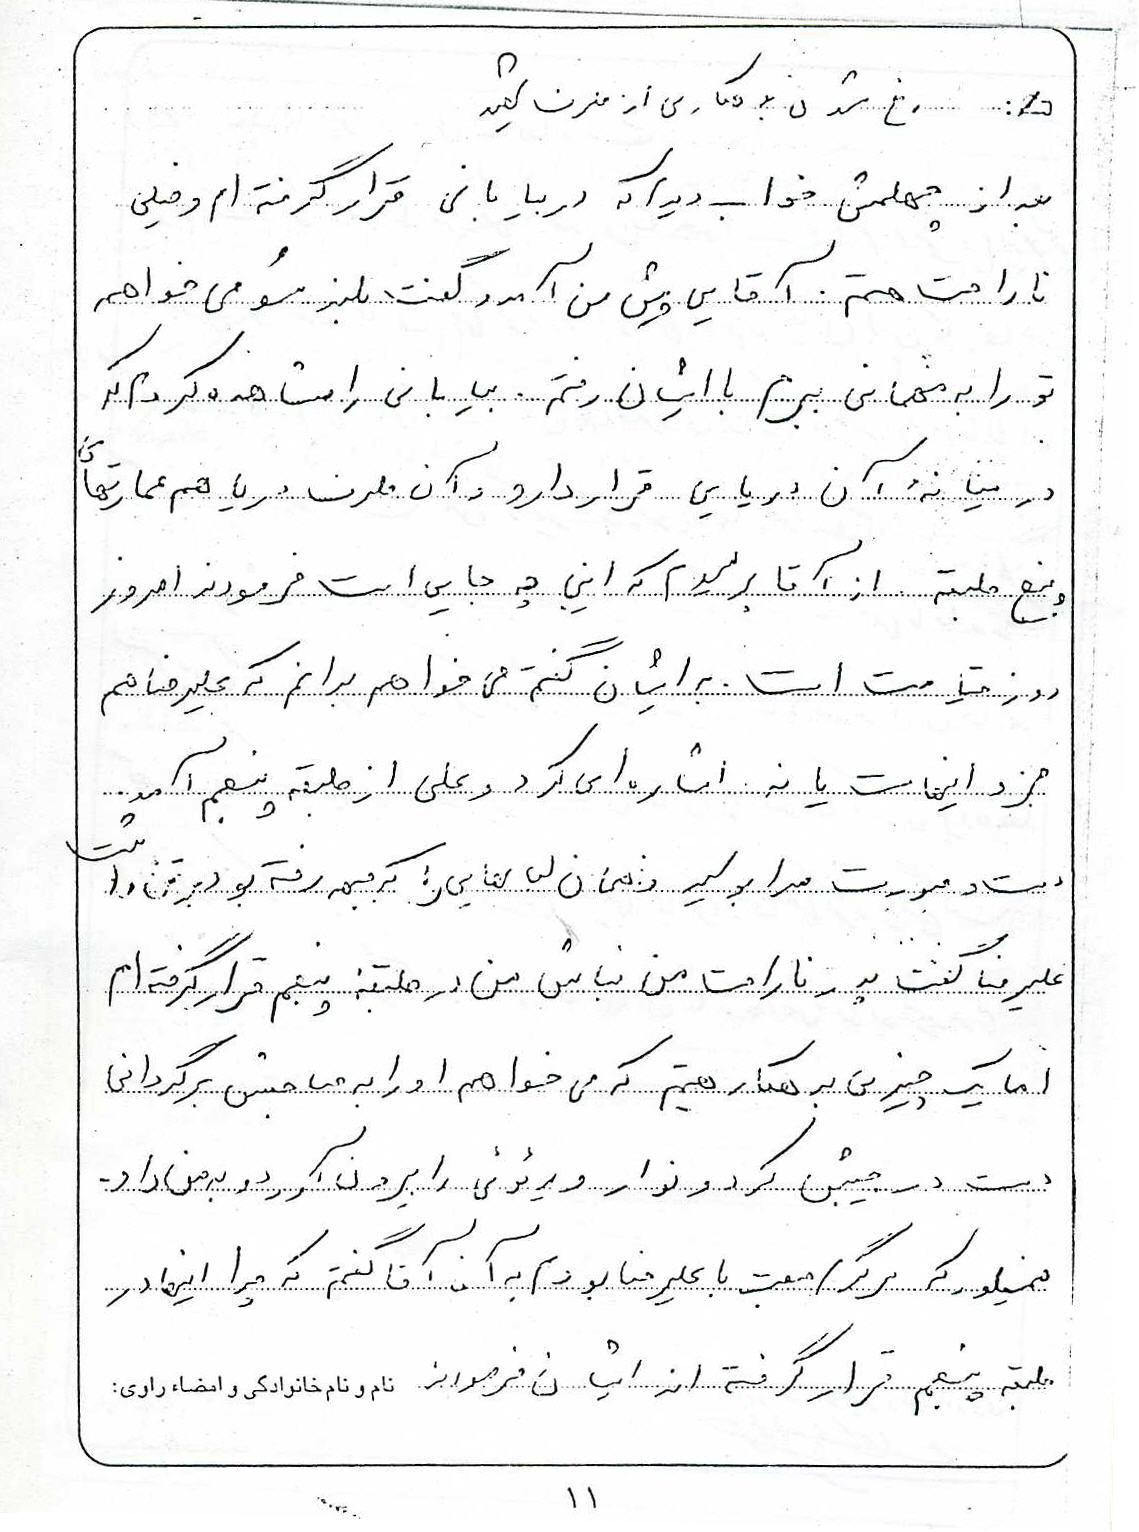 رفع شدن بدهکاری از طرف شهید
بعد از چهلمش خواب دیدم که در بیابانی قرار گرفته ام و خیلی
ناراحت هستم . آقایی پیش من آمد و گفت بلند شو می خواهم
تو را به مهمانی ببرم با ایشان رفتم . بیابانی را مشاهده کردم که
در میانهٔ آن دریایی قرار دارد و آن طرف دریا هم عمارتهای
پنج طبقه . از آقا پرسیدم که این چه جایی است فرمودند امروز
روز قیامت است . به ایشان گفتم می خواهم بدانم که علیرضا هم
جزو اینهاست یا نه . اشاره ای کرد و علی از طبقه پنجم آمد .
دست و صورت مرا بوسید و همان لباسهایی که جبهه رفته بود بر تن داشت
علیرضا گفت پدر ناراحت من نباش من در طبقهٔ پنجم قرار گرفته ام
اما یک چیزی بدهکار هستم که می خواهم او را به صاحبش برگردانی
دست در جیبش کرد و نوار ویدئوئی را بیرون آورد و به من داد .
همینطور که سرگرم صحبت با علیرضا بودم به آن آقا گفتم که چرا اینها در
طبقه پنجم قرار گرفته اند ایشان فرمودند
نام و نام خانوادگی و امضاء راوی:
۱۱